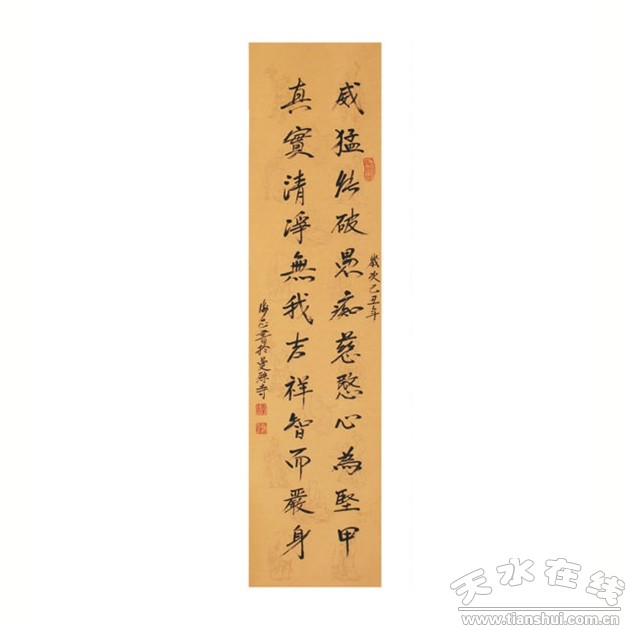 威猛能破愚痴慈愍心為堅甲
歲次己丑年
真實清淨無我吉祥智而嚴身
書於曼殊寺
天水在线
www.tianshui.com.cn